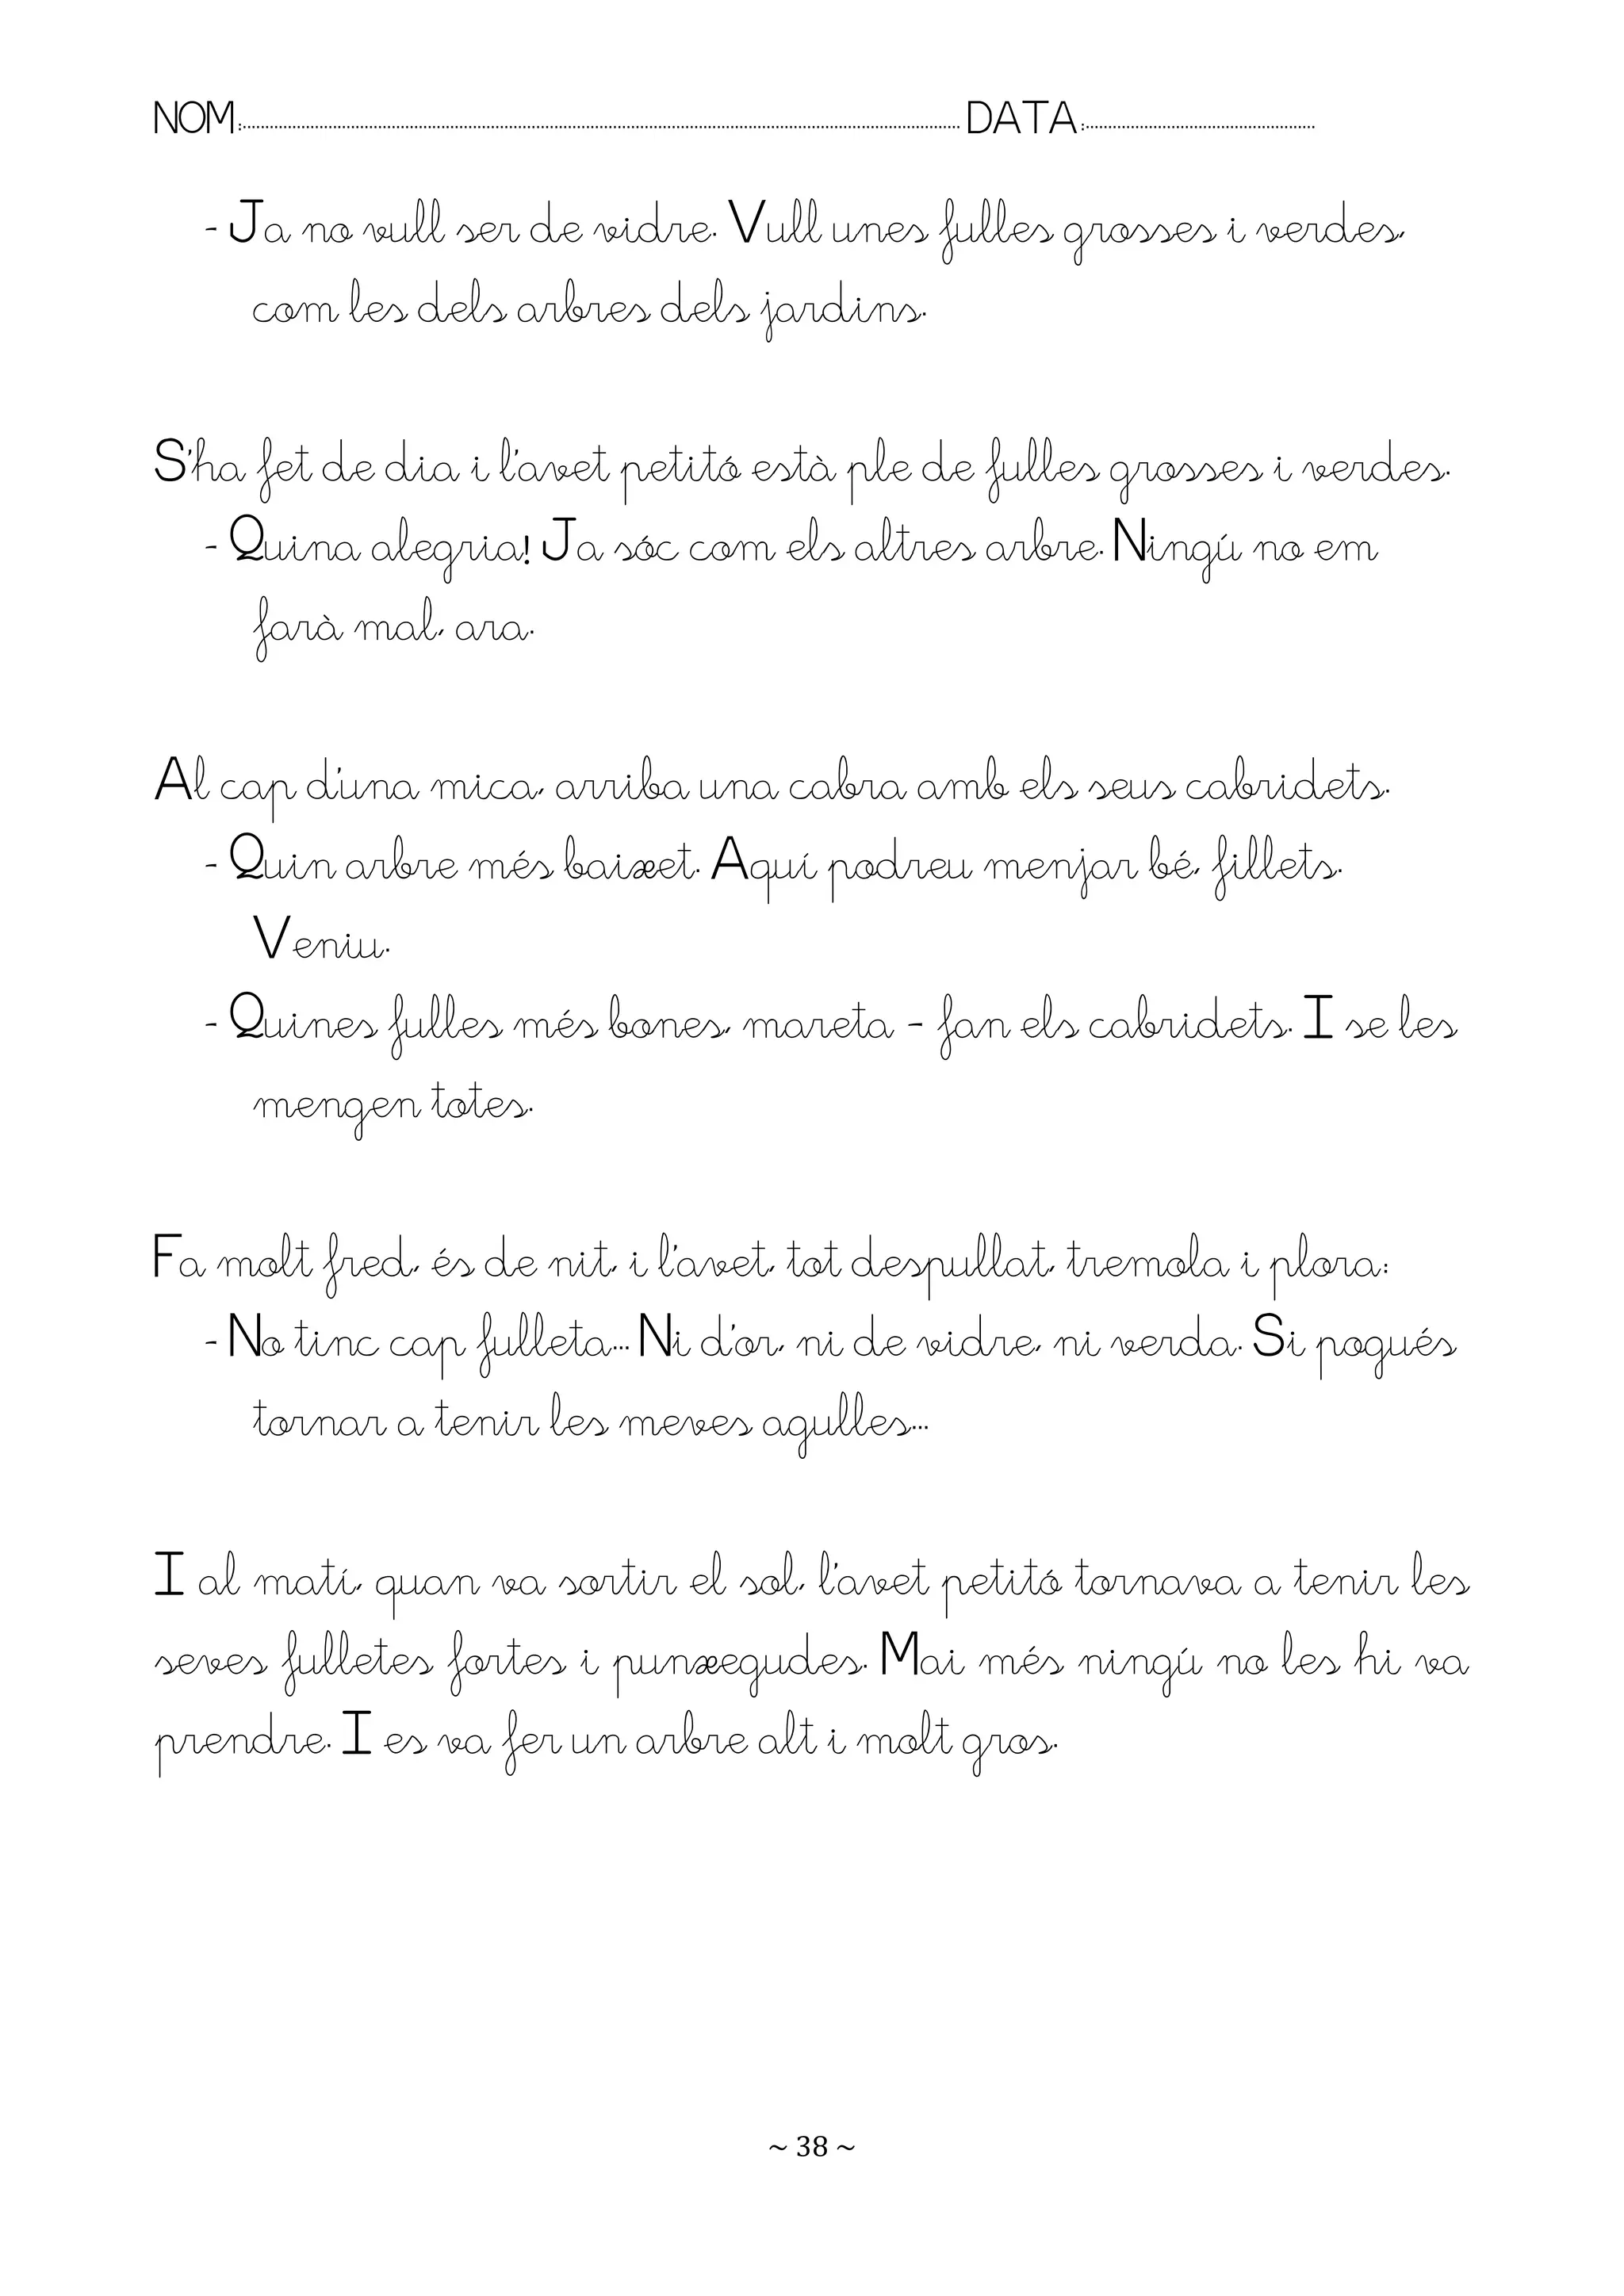 NOM:........................................................................................................................................................ DATA:...................................................
- Ja no vull ser de vidre. Vull unes fulles grosses i verdes,
com les dels arbres dels jardins.
S'ha fet de dia i l'avet petitó està ple de fulles grosses i verdes.
- Quina alegria! Ja sóc com els altres arbre. Ningú no em
farà mal, ara.
Al cap d'una mica, arriba una cabra amb els seus cabridets.
- Quin arbre més baixet. Aquí podreu menjar bé, fillets.
Veniu.
- Quines fulles més bones, mareta - fan els cabridets. I se les
mengen totes.
Fa molt fred, és de nit, i l'avet, tot despullat, tremola i plora:
- No tinc cap fulleta... Ni d'or, ni de vidre, ni verda. Si pogués
tornar a tenir les meves agulles...
I al matí, quan va sortir el sol, l'avet petitó tornava a tenir les
seves fulletes fortes i punxegudes. Mai més ningú no les hi va
prendre. I es va fer un arbre alt i molt gros.
~ 38 ~